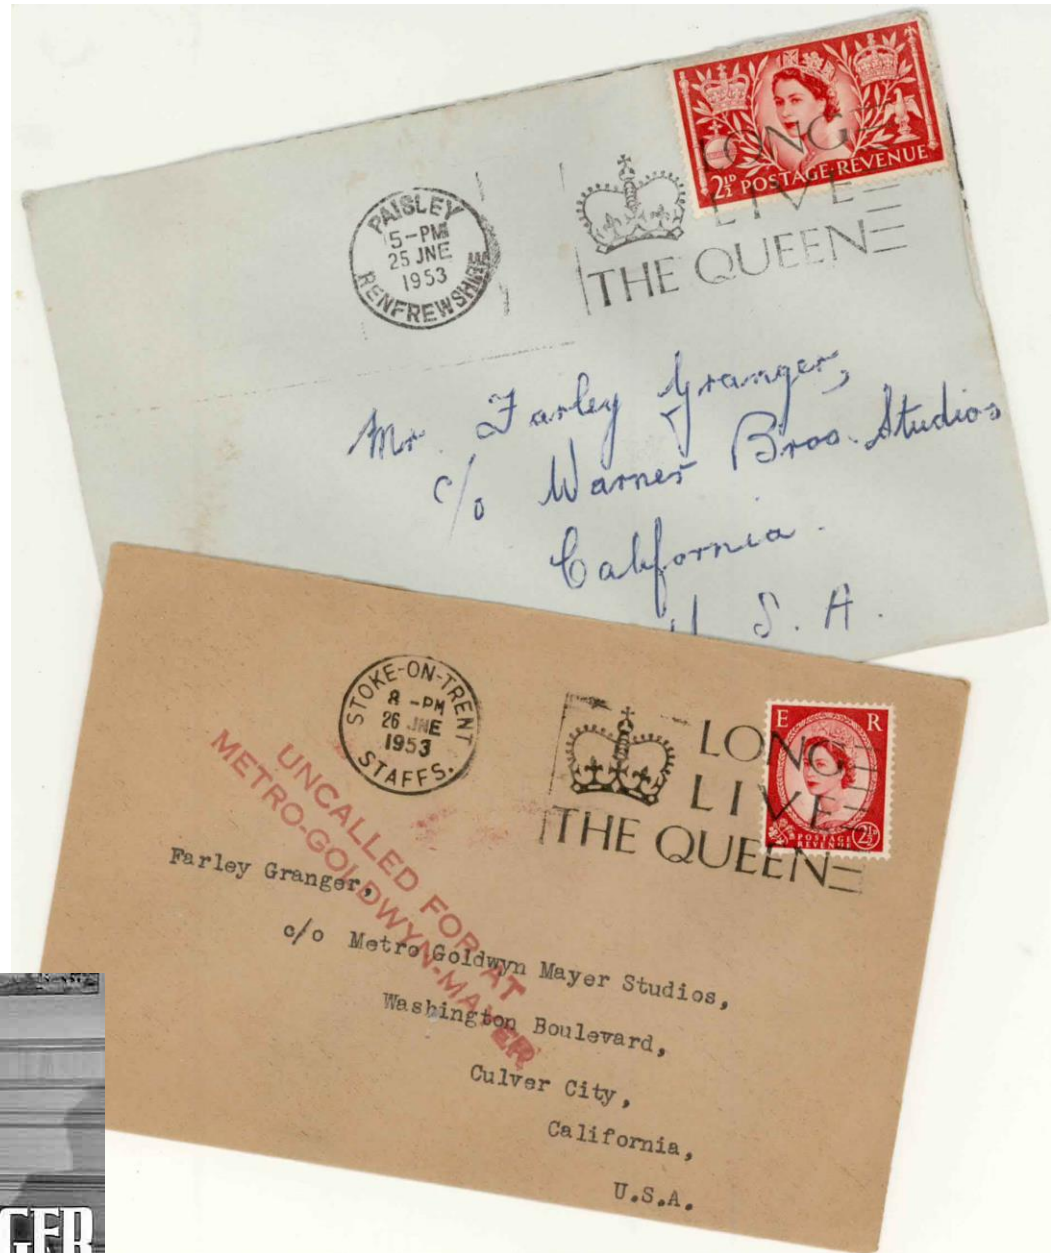 PAISLEY
5-PM
25 JNE
1953
RENFREWSHIRE
LONG
LIVE
THE QUEEN
2½D POSTAGE REVENUE
Mr. Farley Granger,
c/o Warner Bros. Studios
California.
U. S. A.
STOKE-ON-TRENT
8-PM
26 JNE
1953
STAFFS.
LONG
LIVE
THE QUEEN
E R
POSTAGE
REVENUE
2½D
UNCALLED FOR AT
METRO-GOLDWYN-MAYER
Farley Granger,
c/o Metro Goldwyn Mayer Studios,
Washington Boulevard,
Culver City,
California,
U.S.A.
GER